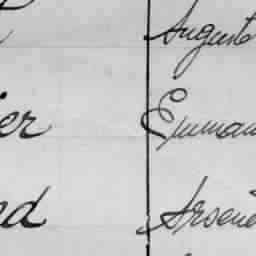 Auguste
er Emman
d Arsène